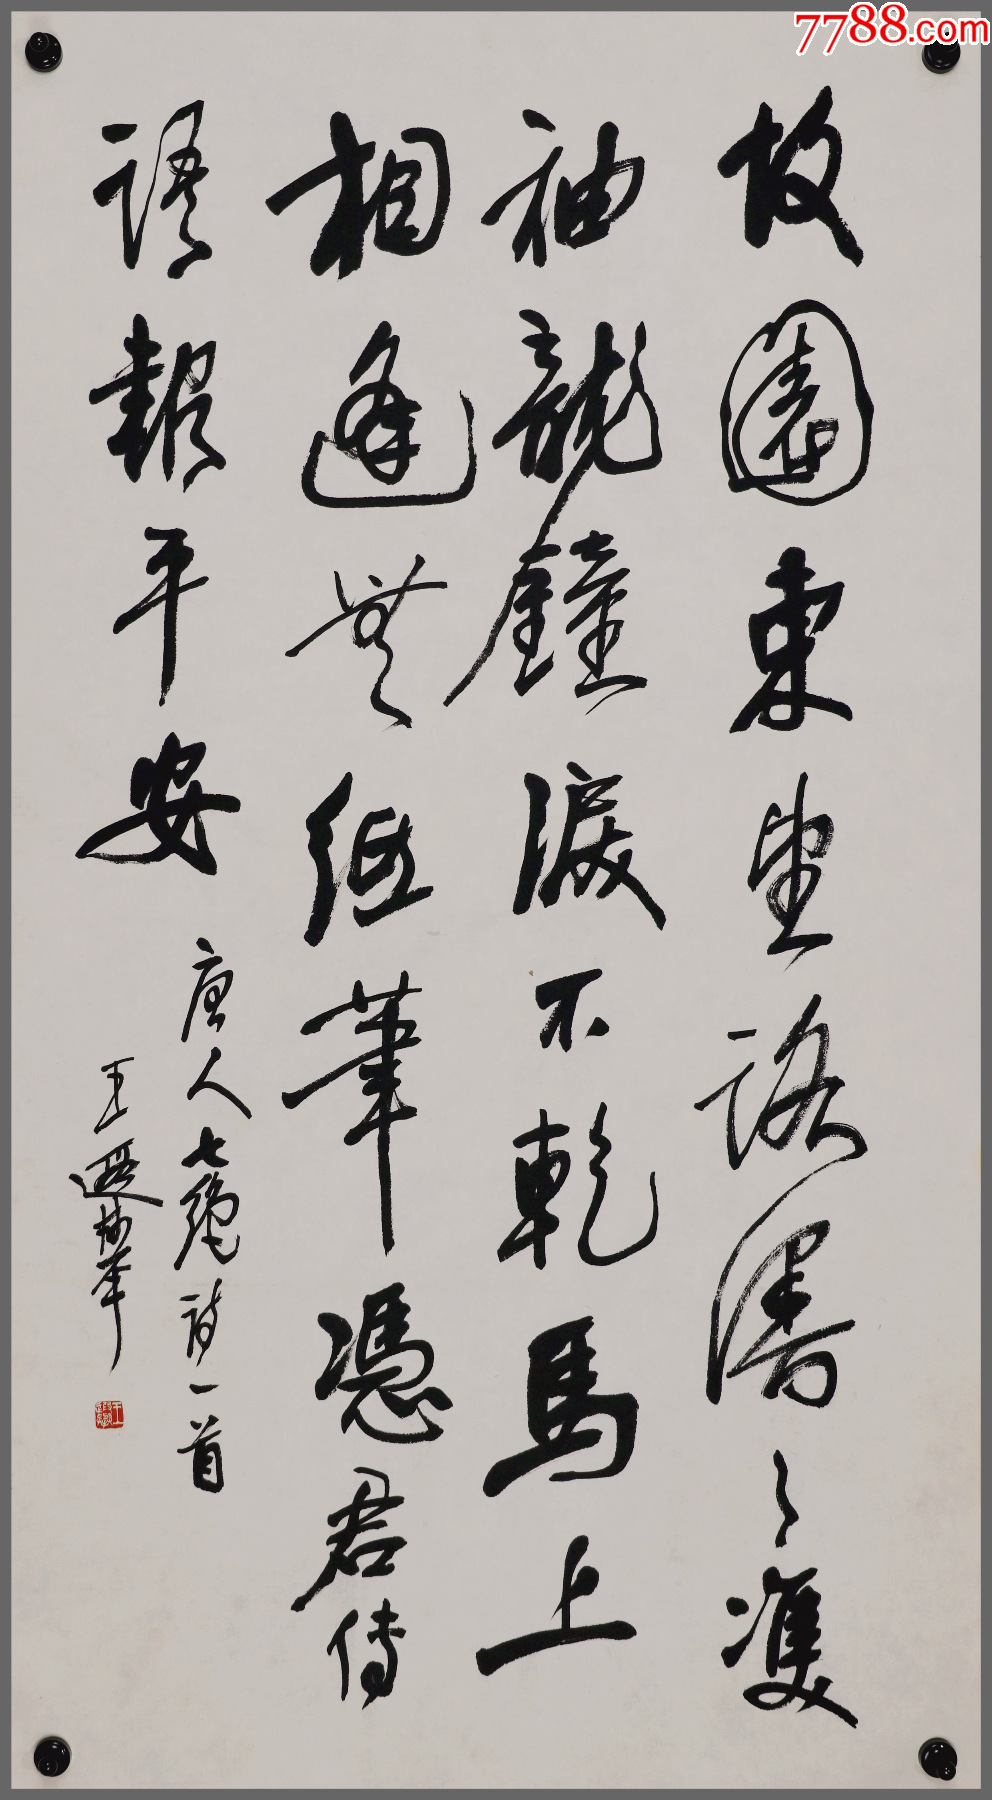 7788.com
故園東望路漫々雙
袖龍鐘淚不乾馬上
相逢無紙筆憑君傳
語報平安
唐人七絕詩一首
王遐舉